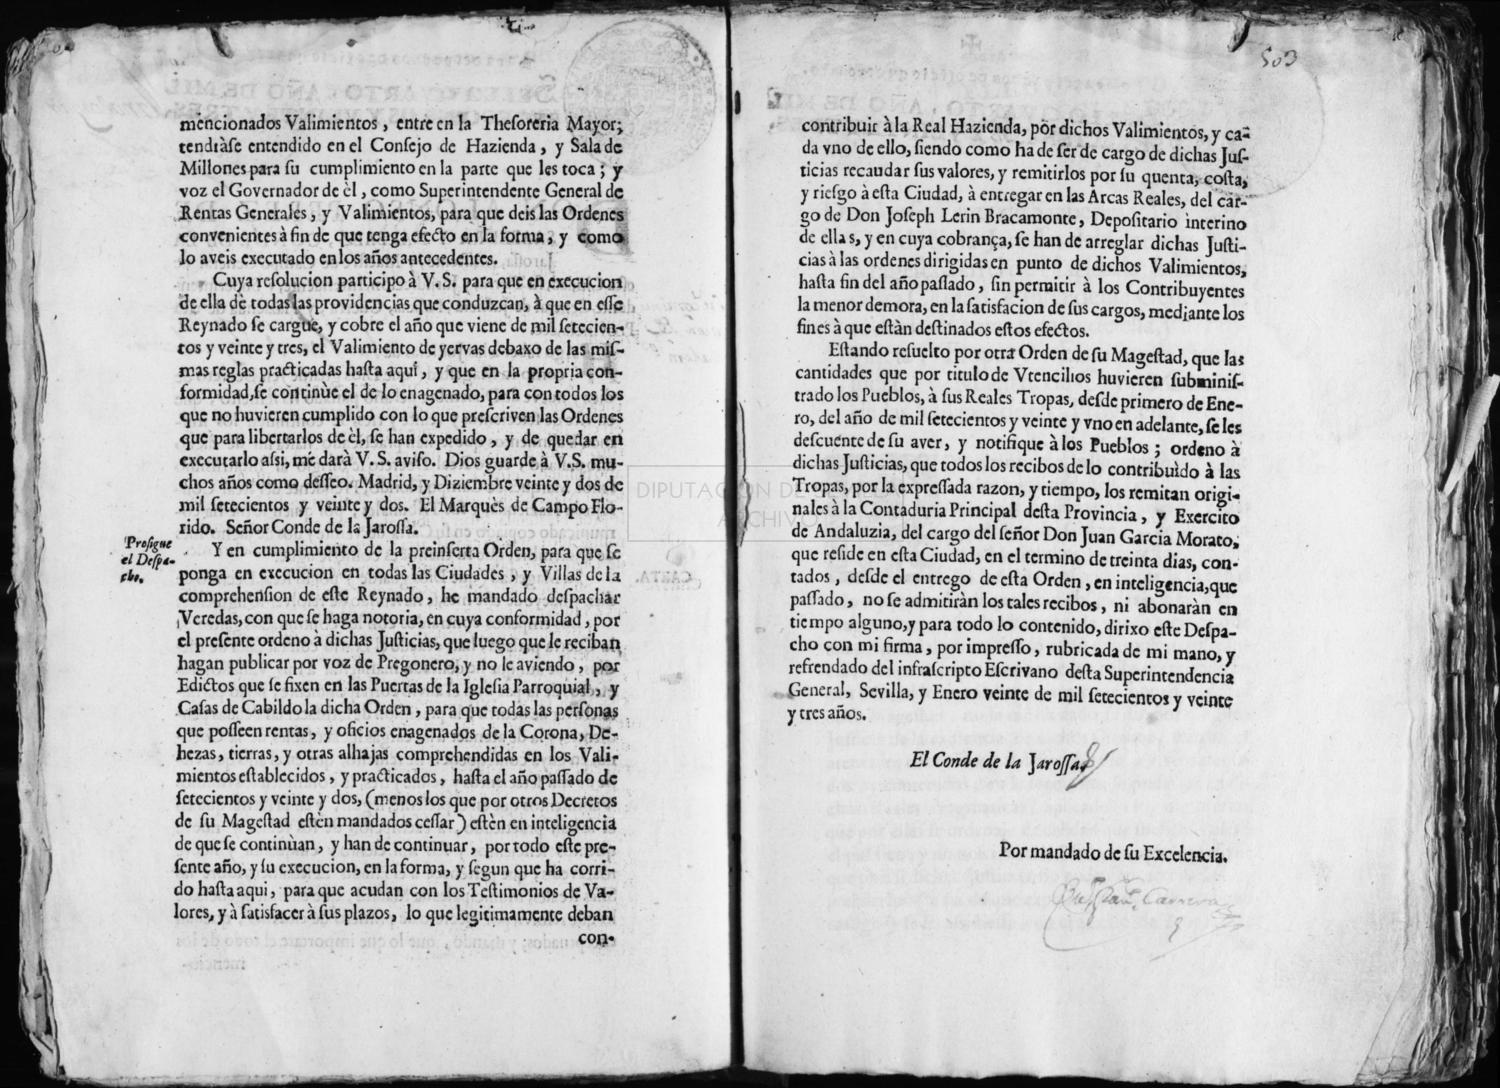 mencionados Valimientos, entre en la Theſoreria Mayor;
tendràſe entendido en el Conſejo de Hazienda, y Sala de
Millones para ſu cumplimiento en la parte que les toca; y
voz el Governador de èl, como Superintendente General de
Rentas Generales, y Valimientos, para que deis las Ordenes
convenientes à fin de que tenga efecto en la forma, y como
lo aveis executado en los años antecedentes.
Cuya reſolucion participo à V. S. para que en execucion
de ella dè todas las providencias que conduzcan, à que en eſſe
Reynado ſe cargue, y cobre el año que viene de mil ſetecien-
tos y veinte y tres, el Valimiento de yervas debaxo de las miſ-
mas reglas practicadas haſta aqui, y que en la propria con-
formidad, ſe continùe el de lo enagenado, para con todos los
que no huvieren cumplido con lo que preſcriven las Ordenes
que para libertarlos de èl, ſe han expedido, y de quedar en
executarlo aſsi, me darà V. S. aviſo. Dios guarde à V.S. mu-
chos años como deſſeo. Madrid, y Diziembre veinte y dos de
mil ſetecientos y veinte y dos. El Marquès de Campo Flo-
rido. Señor Conde de la Jaroſſa.
Proſigue
el Deſpa-
cho.
Y en cumplimiento de la preinſerta Orden, para que ſe
ponga en execucion en todas las Ciudades, y Villas de la
comprehenſion de eſte Reynado, he mandado deſpachar
Veredas, con que ſe haga notoria, en cuya conformidad, por
el preſente ordeno à dichas Juſticias, que luego que le reciban
hagan publicar por voz de Pregonero, y no le aviendo, por
Edictos que ſe fixen en las Puertas de la Igleſia Parroquial, y
Caſas de Cabildo la dicha Orden, para que todas las perſonas
que poſſeen rentas, y oficios enagenados de la Corona, De-
hezas, tierras, y otras alhajas comprehendidas en los Vali-
mientos eſtablecidos, y practicados, haſta el año paſſado de
ſetecientos y veinte y dos, (menos los que por otros Decretos
de ſu Mageſtad eſtèn mandados ceſſar) eſtèn en inteligencia
de que ſe continùan, y han de continuar, por todo eſte pre-
ſente año, y ſu execucion, en la forma, y ſegun que ha corri-
do haſta aqui, para que acudan con los Teſtimonios de Va-
lores, y à ſatisfacer à ſus plazos, lo que legitimamente deban
con-
503
contribuir à la Real Hazienda, por dichos Valimientos, y ca-
da vno de ello, ſiendo como ha de ſer de cargo de dichas Juſ-
ticias recaudar ſus valores, y remitirlos por ſu quenta, coſta,
y rieſgo à eſta Ciudad, à entregar en las Arcas Reales, del car-
go de Don Joſeph Lerin Bracamonte, Depoſitario interino
de ellas, y en cuya cobrança, ſe han de arreglar dichas Juſti-
cias à las ordenes dirigidas en punto de dichos Valimientos,
haſta fin del año paſſado, ſin permitir à los Contribuyentes
la menor demora, en la ſatisfacion de ſus cargos, mediante los
fines à que eſtàn deſtinados eſtos efectos.
Eſtando reſuelto por otra Orden de ſu Mageſtad, que las
cantidades que por titulo de Vtencilios huvieren ſubminiſ-
trado los Pueblos, à ſus Reales Tropas, deſde primero de Ene-
ro, del año de mil ſetecientos y veinte y vno en adelante, ſe les
deſcuente de ſu aver, y notifique à los Pueblos; ordeno à
dichas Juſticias, que todos los recibos de lo contribuìdo à las
Tropas, por la expreſſada razon, y tiempo, los remitan origi-
nales à la Contaduria Principal deſta Provincia, y Exercito
de Andaluzia, del cargo del ſeñor Don Juan Garcia Morato,
que reſide en eſta Ciudad, en el termino de treinta dias, con-
tados, deſde el entrego de eſta Orden, en inteligencia, que
paſſado, no ſe admitiràn los tales recibos, ni abonaràn en
tiempo alguno, y para todo lo contenido, dirixo eſte Deſpa-
cho con mi firma, por impreſſo, rubricada de mi mano, y
refrendado del infraſcripto Eſcrivano deſta Superintendencia
General, Sevilla, y Enero veinte de mil ſetecientos y veinte
y tres años.
El Conde de la Jaroſſa.
Por mandado de ſu Excelencia.
Carrera
DIPUTACIÓN DE SEVILLA
ARCHIVO
CARTA.